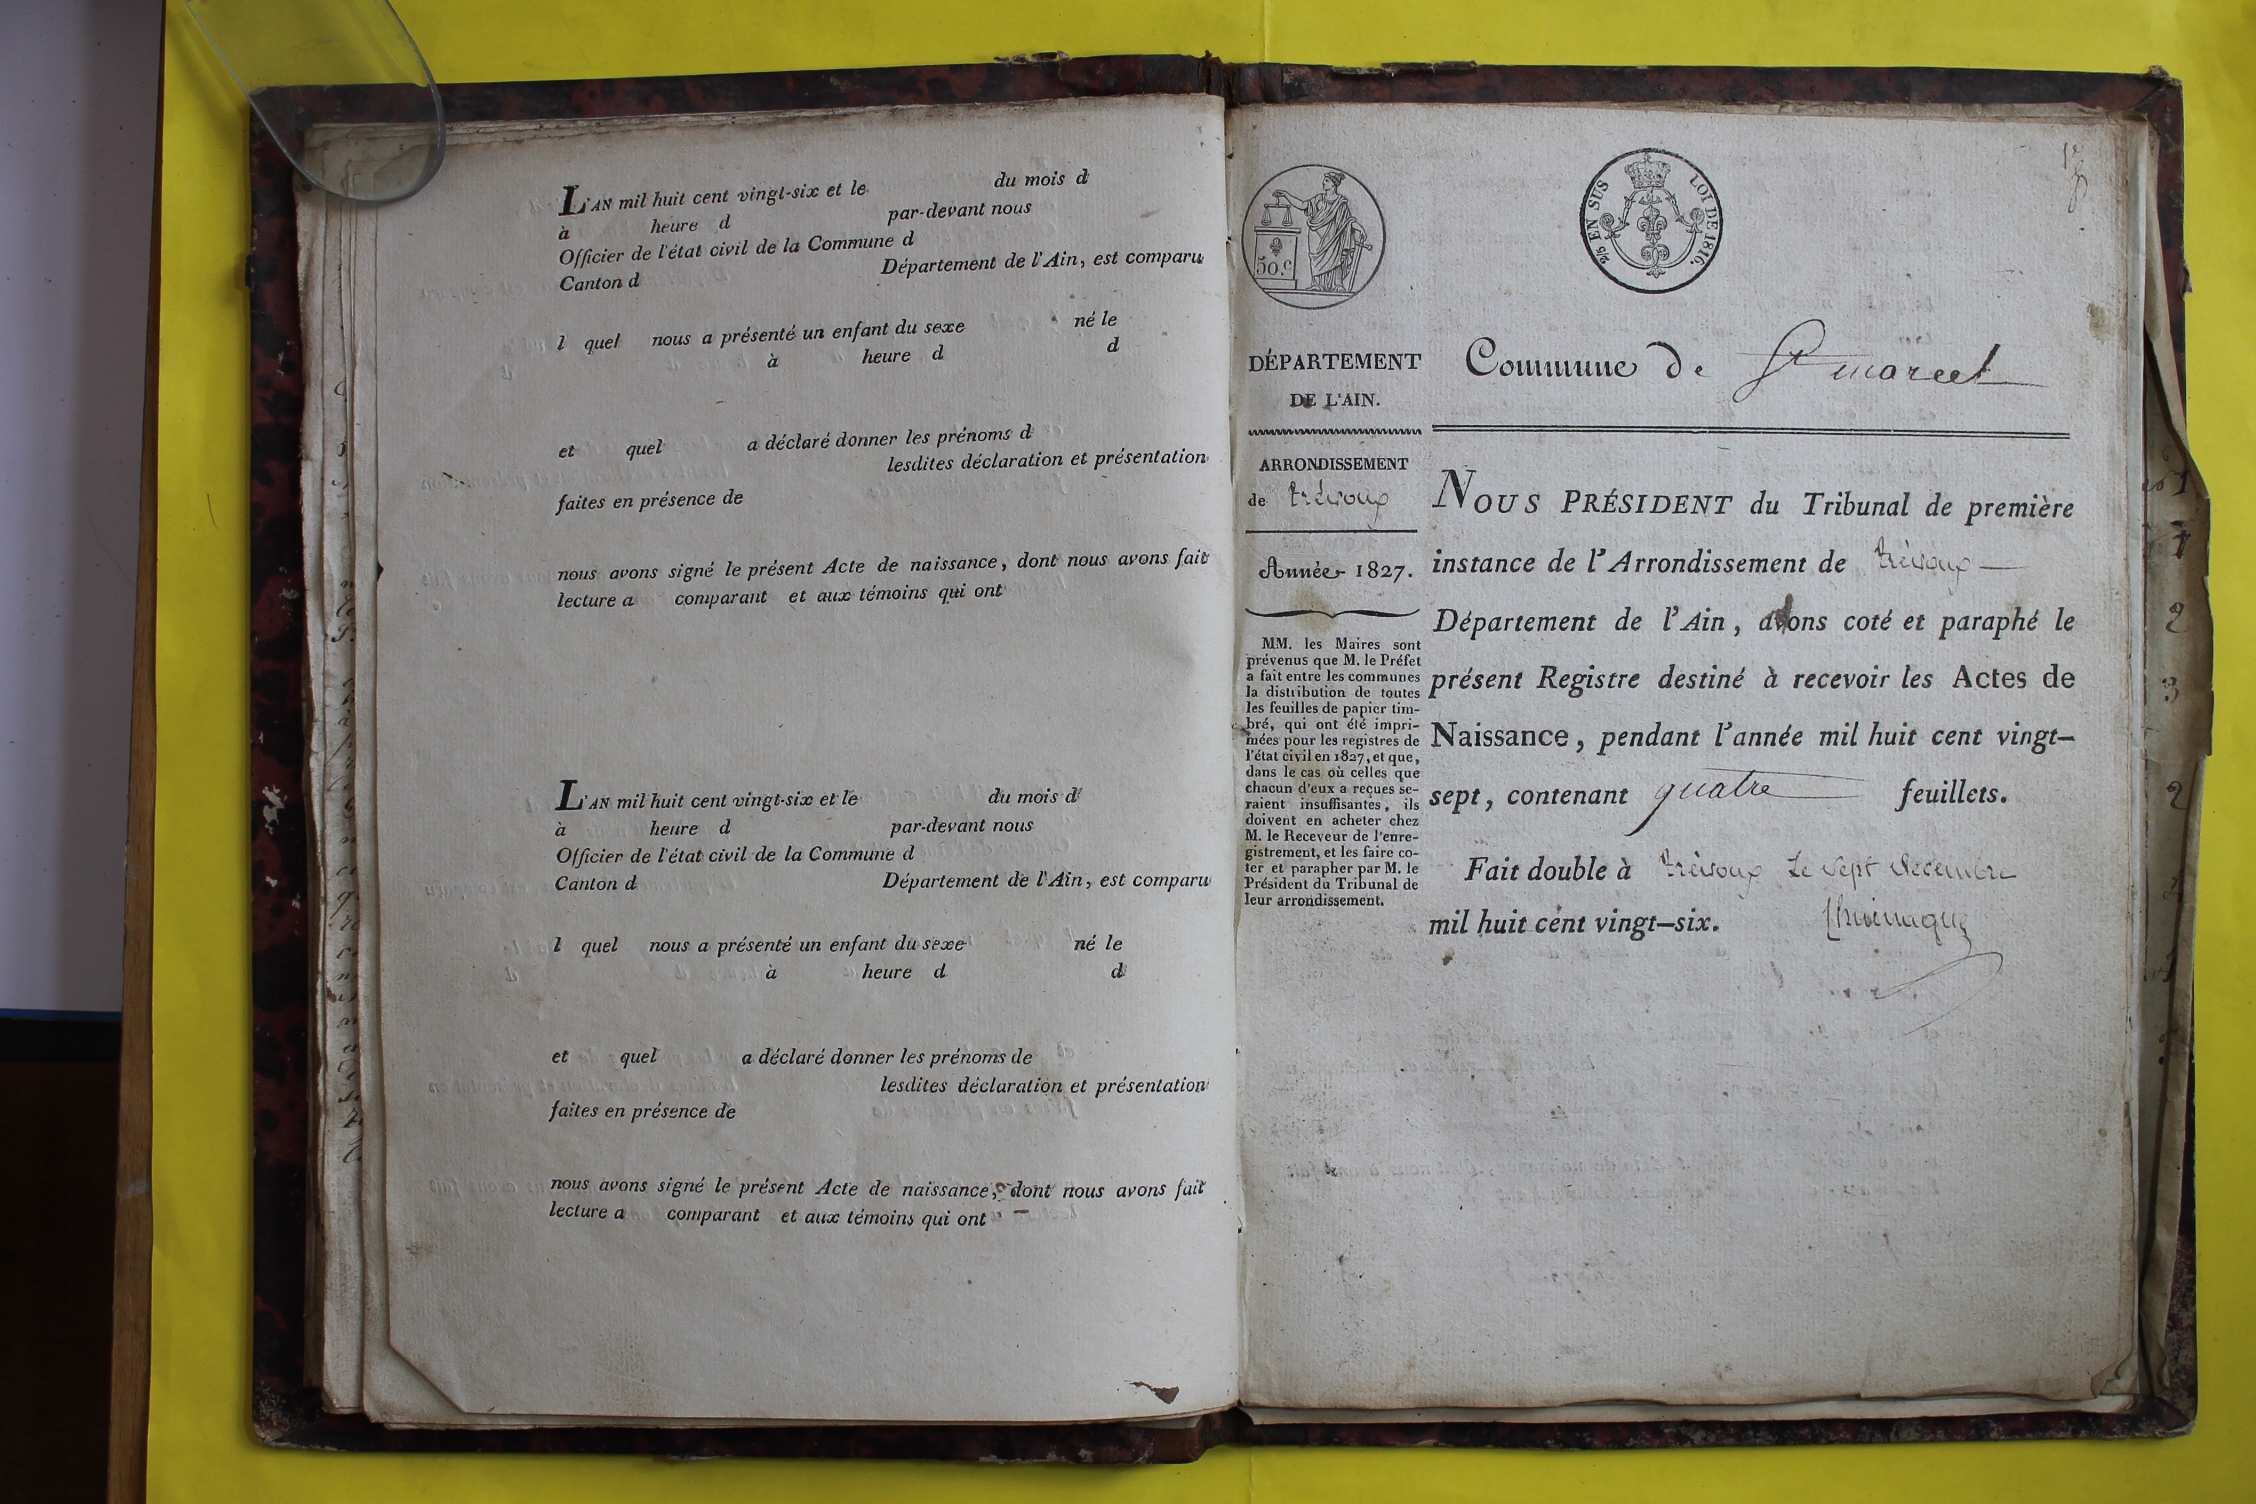 L'AN mil huit cent vingt-six et le du mois d
à heure d par-devant nous
Officier de l'état civil de la Commune d
Canton d Département de l'Ain, est comparu
l quel nous a présenté un enfant du sexe né le
à heure d d
et quel a déclaré donner les prénoms d
lesdites déclaration et présentation
faites en présence de
nous avons signé le présent Acte de naissance, dont nous avons fait
lecture a comparant et aux témoins qui ont
L'AN mil huit cent vingt-six et le du mois d
à heure d par-devant nous
Officier de l'état civil de la Commune d
Canton d Département de l'Ain, est comparu
l quel nous a présenté un enfant du sexe né le
à heure d d
et quel a déclaré donner les prénoms de
lesdites déclaration et présentation
faites en présence de
nous avons signé le présent Acte de naissance, dont nous avons fait
lecture a comparant et aux témoins qui ont
50 c
EN SUS LOI DE 1816.
DÉPARTEMENT
DE L'AIN.
ARRONDISSEMENT
de trévoux
Année 1827.
MM. les Maires sont
prévenus que M. le Préfet
a fait entre les communes
la distribution de toutes
les feuilles de papier tim-
bré, qui ont été impri-
mées pour les registres de
l'état civil en 1827, et que,
dans le cas où celles que
chacun d'eux a reçues se-
raient insuffisantes, ils
doivent en acheter chez
M. le Receveur de l'enre-
gistrement, et les faire co-
ter et parapher par M. le
Président du Tribunal de
leur arrondissement.
Commune de St marcel
NOUS PRÉSIDENT du Tribunal de première
instance de l'Arrondissement de trévoux
Département de l'Ain, avons coté et paraphé le
présent Registre destiné à recevoir les Actes de
Naissance, pendant l'année mil huit cent vingt-
sept, contenant quatre feuillets.
Fait double à trévoux Le sept decembre
mil huit cent vingt-six.